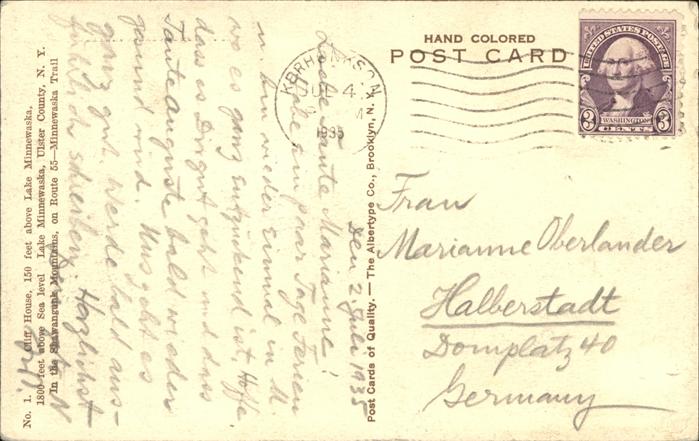 HAND COLORED
POST CARD
UNITED STATES POSTAGE
WASHINGTON
3 CENTS 3
KERHONKSON
JUL 4
1935
Frau
Marianne Oberlander
Halberstadt
Domplatz 40
Germany
Den 2. Juli 1935
Liebe Tante Marianne!
Habe ein paar Tage Ferien
u. bin wieder einmal in M.
wo es ganz entzückend ist. Hoffe
dass es Dir gut geht und dass
Tante Auguste bald wieder
gesund wird. Uns geht es
ganz gut. Werde bald aus-
führlich schreiben. Herzlichst
No. 1. Cliff House, 150 feet above Lake Minnewaska,
1800 feet above Sea level Lake Minnewaska, Ulster County, N. Y.
In the Shawangunk Mountains, on Route 55—Minnewaska Trail
Post Cards of Quality. — The Albertype Co., Brooklyn, N.